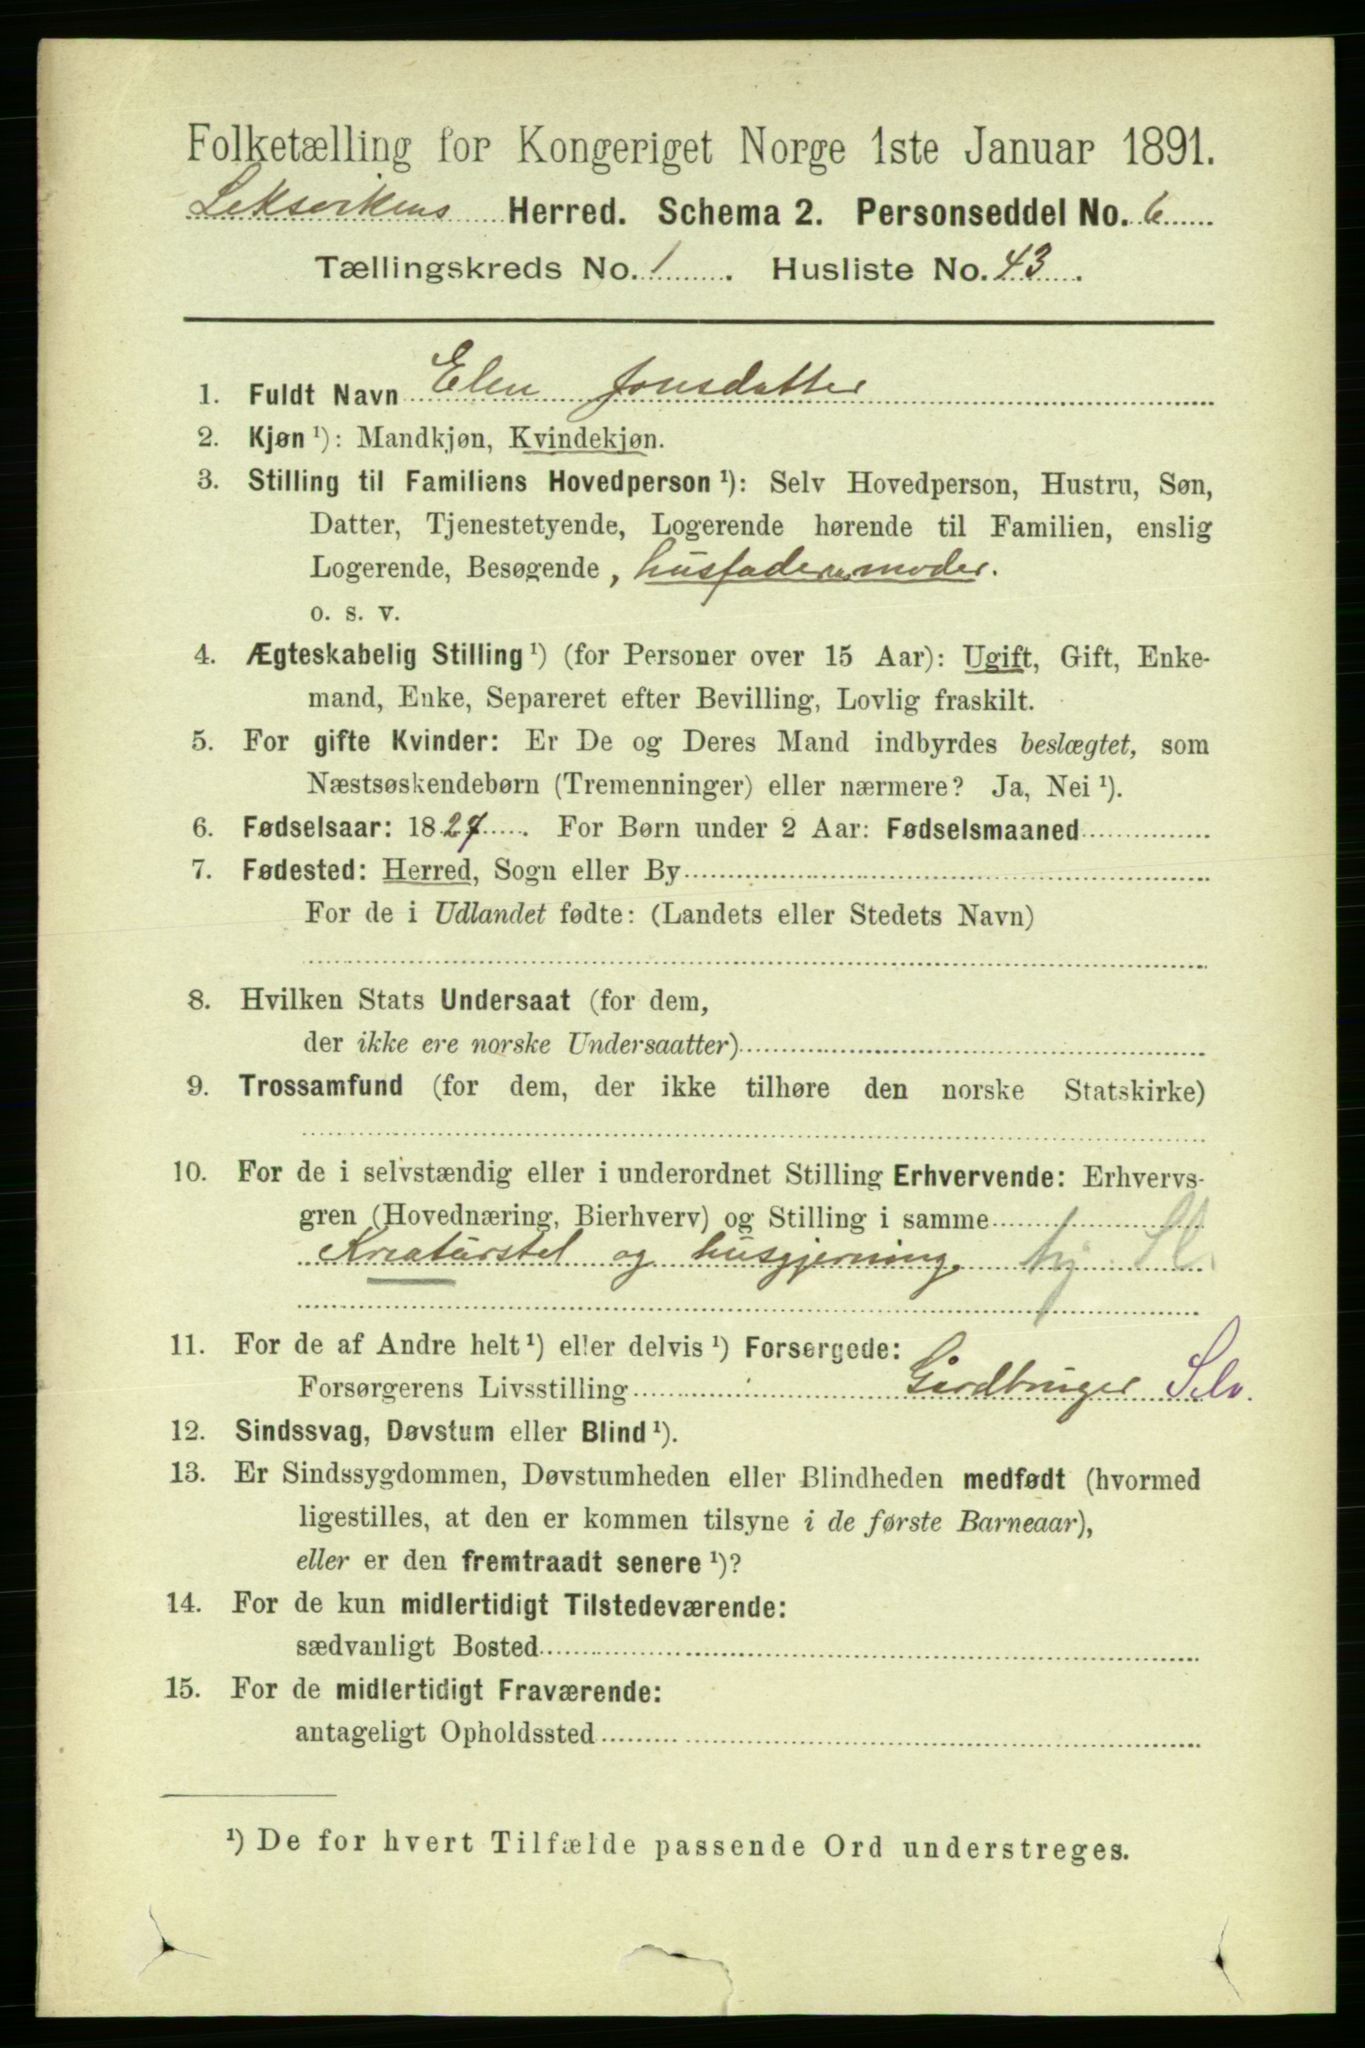 Folketælling for Kongeriget Norge 1ste Januar 1891.
Leksvikens Herred. Schema 2. Personseddel No. 6
Tællingskreds No. 1. Husliste No. 43.
1. Fuldt Navn Elen Jonsdatter
2. Kjøn ¹): Mandkjøn, Kvindekjøn.
3. Stilling til Familiens Hovedperson ¹): Selv Hovedperson, Hustru, Søn,
Datter, Tjenestetyende, Logerende hørende til Familien, enslig
Logerende, Besøgende, husfaderens moder.
o. s. v.
4. Ægteskabelig Stilling ¹) (for Personer over 15 Aar): Ugift, Gift, Enke-
mand, Enke, Separeret efter Bevilling, Lovlig fraskilt.
5. For gifte Kvinder: Er De og Deres Mand indbyrdes beslægtet, som
Næstsøskendebørn (Tremenninger) eller nærmere? Ja, Nei ¹).
6. Fødselsaar: 1827. For Børn under 2 Aar: Fødselsmaaned
7. Fødested: Herred, Sogn eller By
For de i Udlandet fødte: (Landets eller Stedets Navn)
8. Hvilken Stats Undersaat (for dem,
der ikke ere norske Undersaatter)
9. Trossamfund (for dem, der ikke tilhøre den norske Statskirke)
10. For de i selvstændig eller i underordnet Stilling Erhvervende: Erhvervs-
gren (Hovednæring, Bierhverv) og Stilling i samme
Kreaturstel og husgjerning.
11. For de af Andre helt ¹) eller delvis ¹) Forsørgede:
Forsørgerens Livsstilling Gårdbruger Selv.
12. Sindssvag, Døvstum eller Blind ¹).
13. Er Sindssygdommen, Døvstumheden eller Blindheden medfødt (hvormed
ligestilles, at den er kommen tilsyne i de første Barneaar),
eller er den fremtraadt senere ¹)?
14. For de kun midlertidigt Tilstedeværende:
sædvanligt Bosted
15. For de midlertidigt Fraværende:
antageligt Opholdssted
¹) De for hvert Tilfælde passende Ord understreges.